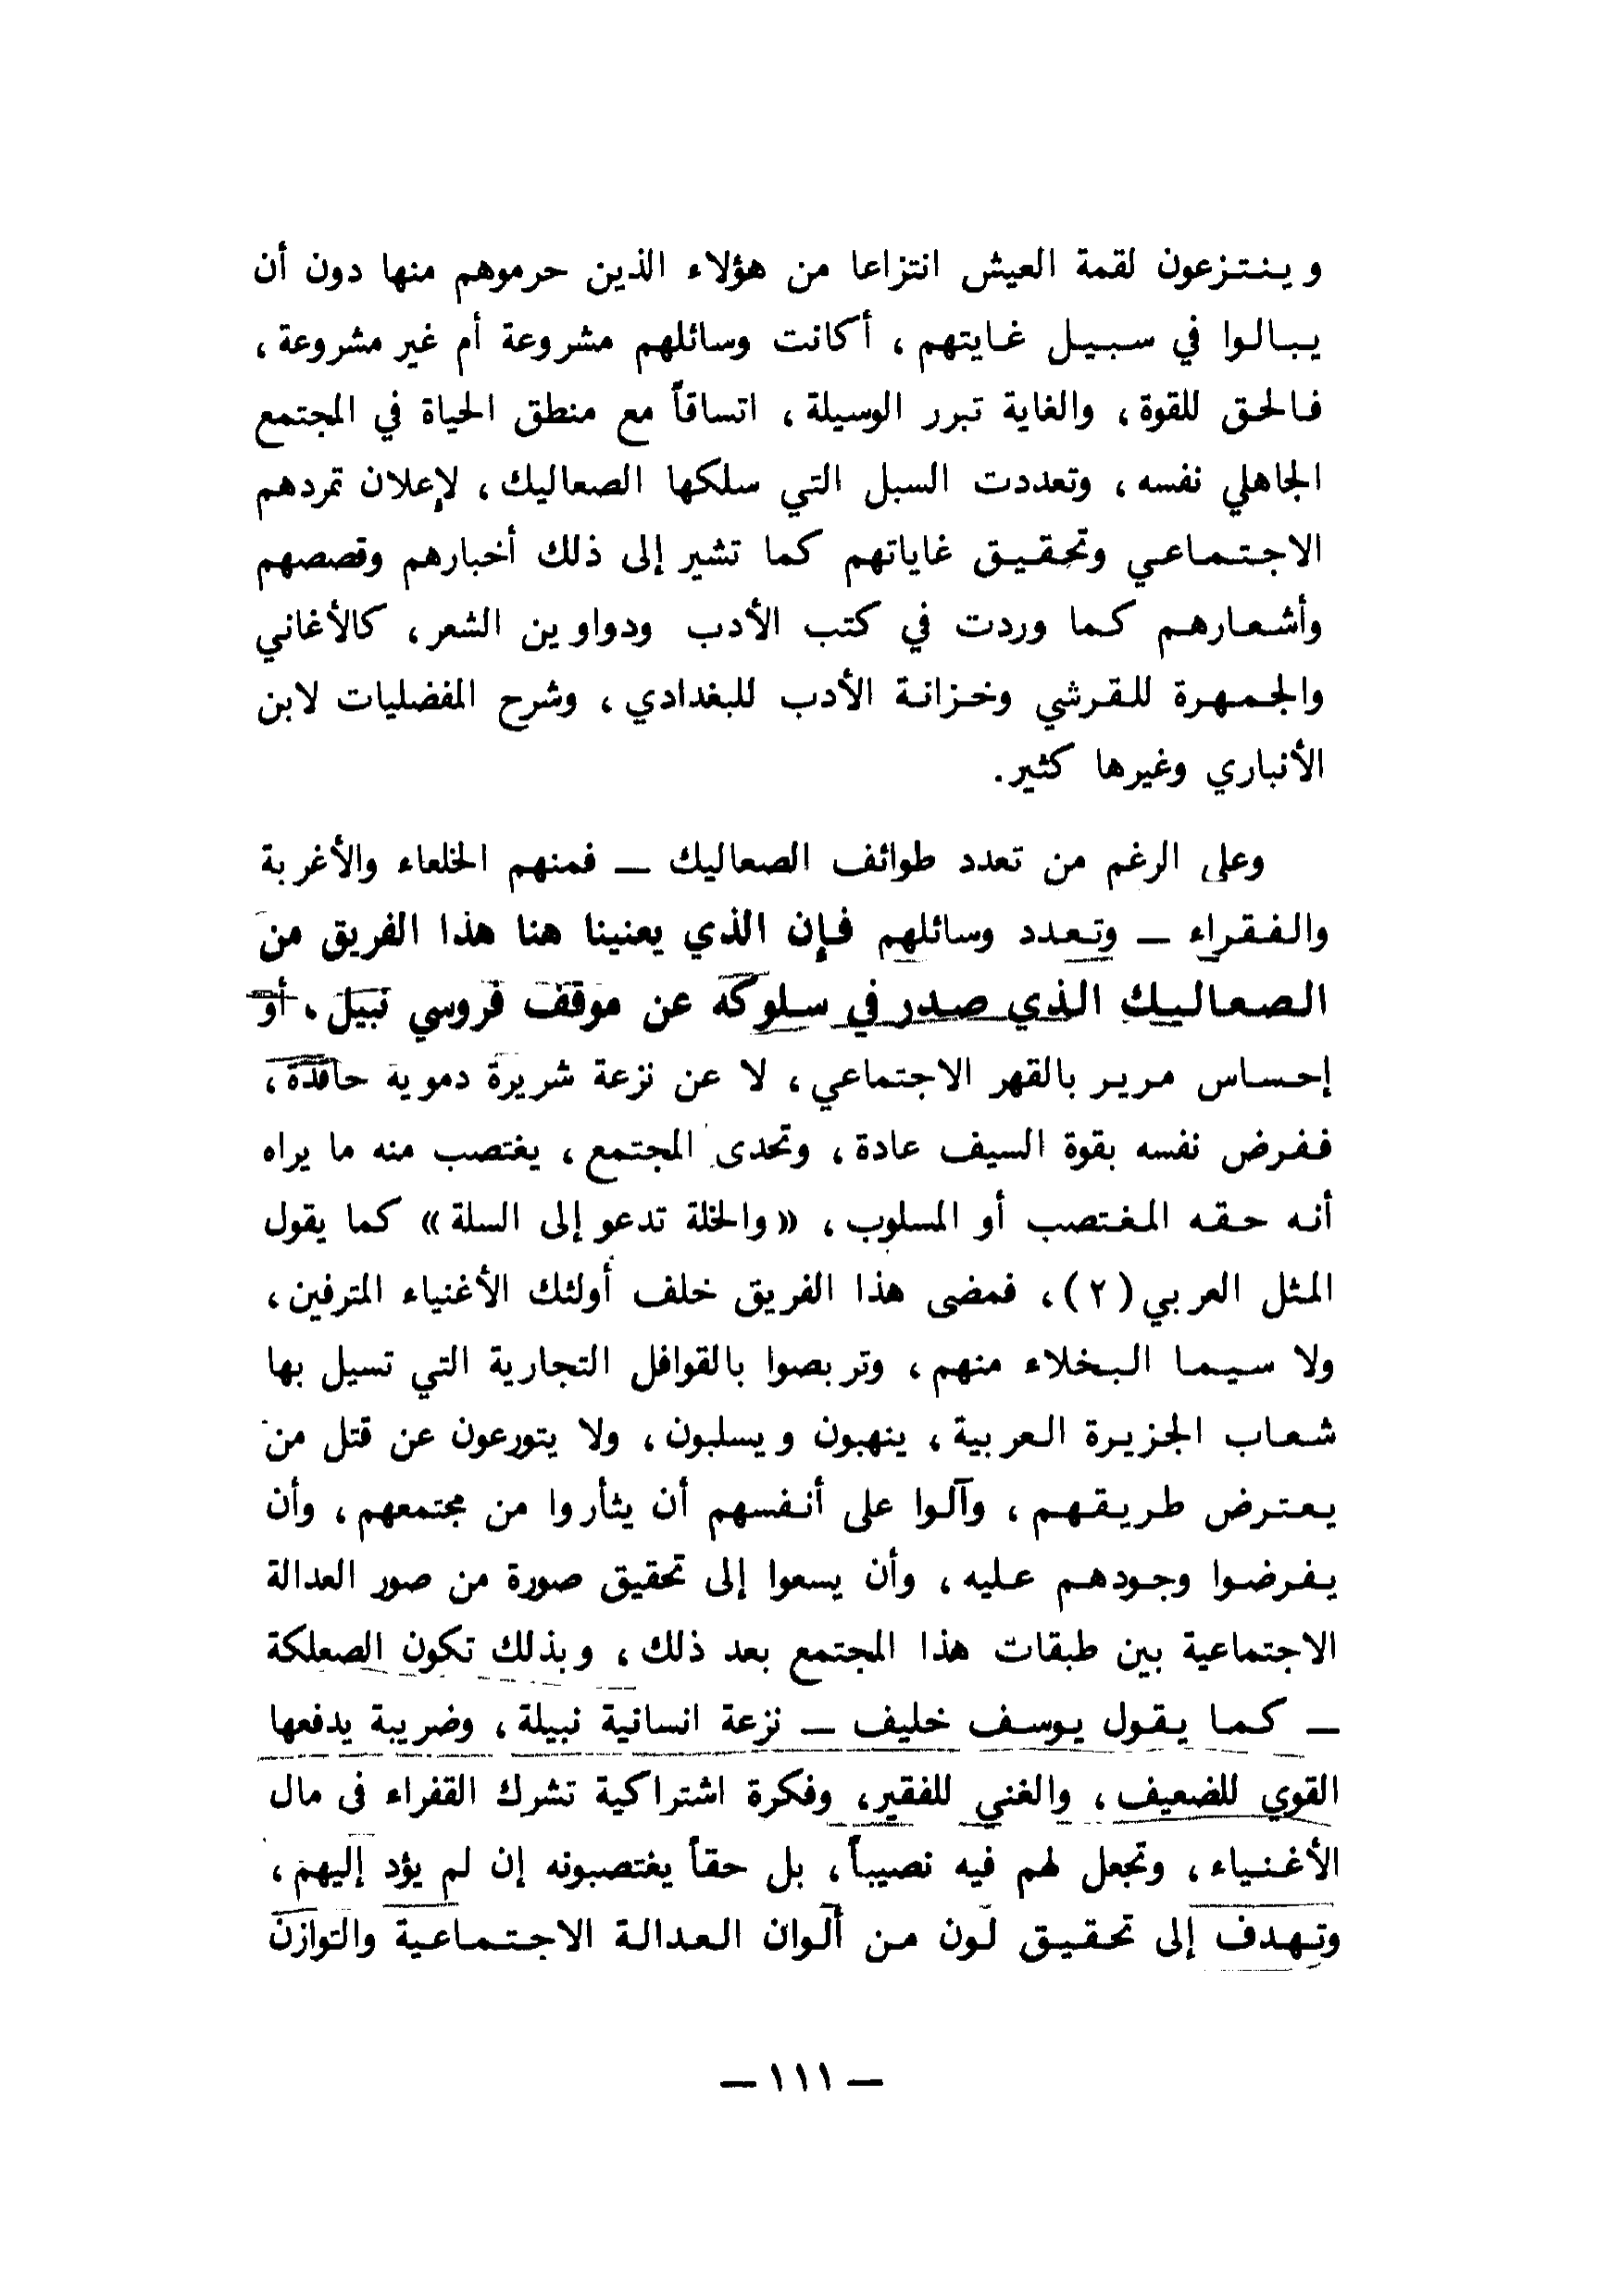 وينتزعون لقمة العيش انتزاعا من هؤلاء الذين حرموهم منها دون أن
يبالوا في سبيل غايتهم، أكانت وسائلهم مشروعة أم غير مشروعة،
فالحق للقوة، والغاية تبرر الوسيلة، اتساقاً مع منطق الحياة في المجتمع
الجاهلي نفسه، وتعددت السبل التي سلكها الصعاليك، لإعلان تمردهم
الاجتماعي وتحقيق غاياتهم كما تشير إلى ذلك أخبارهم وقصصهم
وأشعارهم كما وردت في كتب الأدب ودواوين الشعر، كالأغاني
والجمهرة للقرشي وخزانة الأدب للبغدادي، وشرح المفضليات لابن
الأنباري وغيرها كثير.
وعلى الرغم من تعدد طوائف الصعاليك — فمنهم الخلعاء والأغربة
والفقراء — وتعدد وسائلهم فإن الذي يعنينا هنا هذا الفريق من
الصعاليك الذي صدر في سلوكه عن موقف فروسي نبيل، أو
إحساس مرير بالقهر الاجتماعي، لا عن نزعة شريرة دموية حاقدة،
ففرض نفسه بقوة السيف عادة، وتحدى المجتمع، يغتصب منه ما يراه
أنه حقه المغتصب أو المسلوب، «والخلة تدعو إلى السلة» كما يقول
المثل العربي(٢)، فمضى هذا الفريق خلف أولئك الأغنياء المترفين،
ولا سيما البخلاء منهم، وتربصوا بالقوافل التجارية التي تسيل بها
شعاب الجزيرة العربية، ينهبون ويسلبون، ولا يتورعون عن قتل من
يعترض طريقهم، وآلوا على أنفسهم أن يثأروا من مجتمعهم، وأن
يفرضوا وجودهم عليه، وأن يسعوا إلى تحقيق صورة من صور العدالة
الاجتماعية بين طبقات هذا المجتمع بعد ذلك، وبذلك تكون الصعلكة
— كما يقول يوسف خليف — نزعة انسانية نبيلة، وضريبة يدفعها
القوي للضعيف، والغني للفقير، وفكرة اشتراكية تشرك القفراء في مال
الأغنياء، وتجعل لهم فيه نصيباً، بل حقاً يغتصبونه إن لم يؤد إليهم،
وتهدف إلى تحقيق لون من ألوان العدالة الاجتماعية والتوازن
— ١١١ —